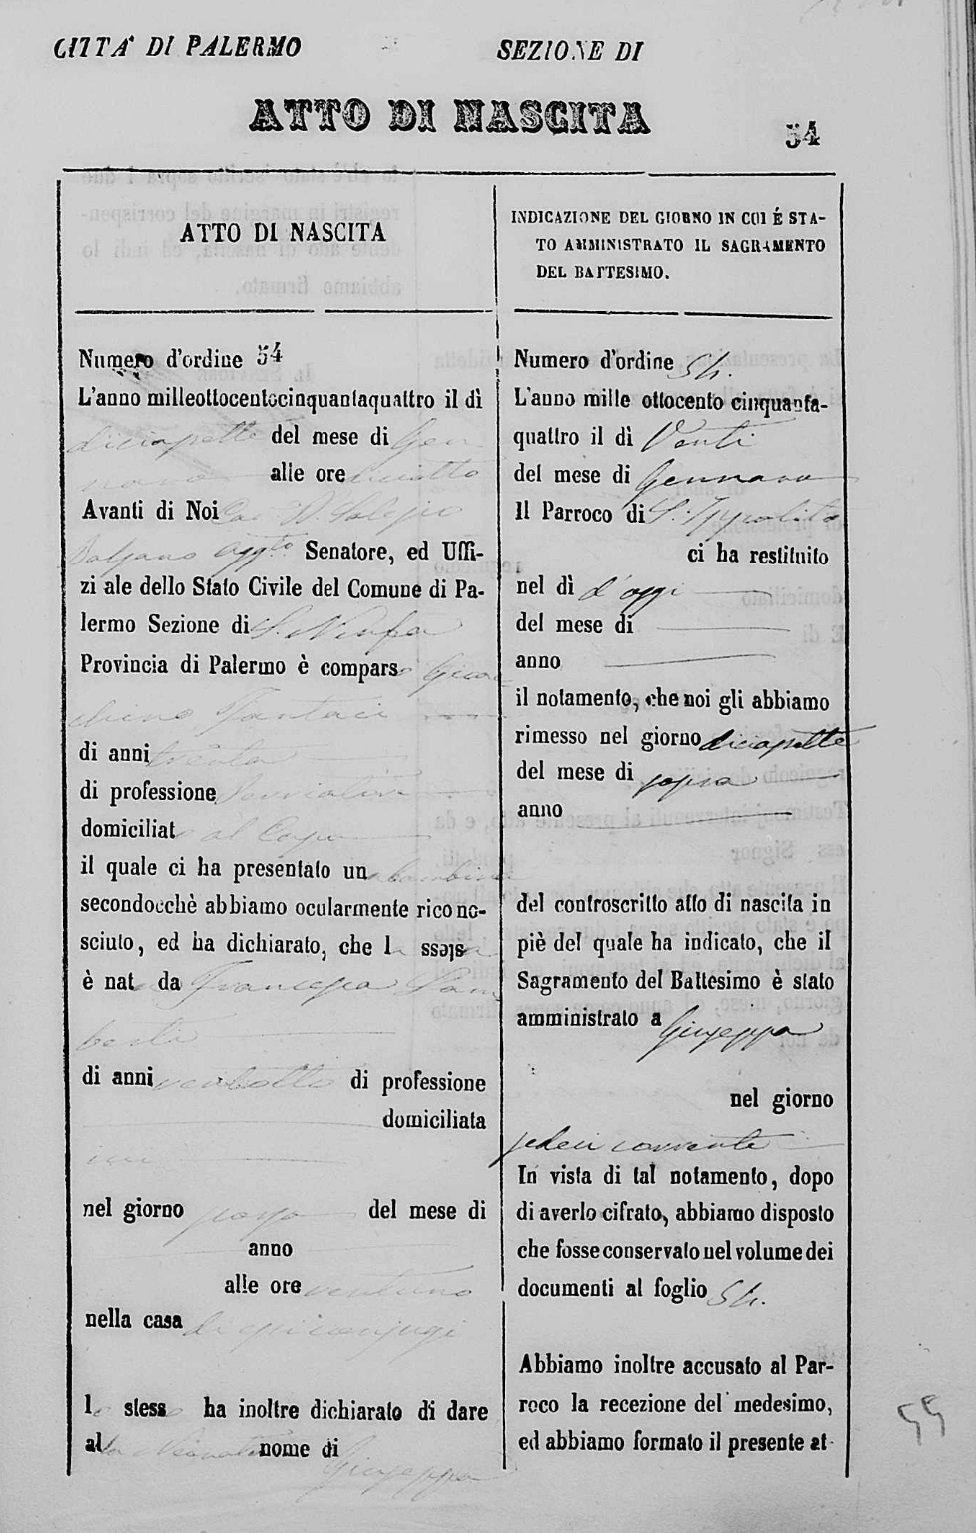 CITTA' DI PALERMO SEZIONE DI
ATTO DI NASCITA
54
ATTO DI NASCITA
Numero d'ordine 54
L'anno milleottocentocinquantaquattro il dì
diciasette del mese di Gen
naro alle ore
Avanti di Noi
Senatore, ed Uffi-
zi ale dello Stato Civile del Comune di Pa-
lermo Sezione di S. Ninfa
Provincia di Palermo è compars Gioac
chino Tantaci
di anni trenta
di professione
domiciliat al Capo
il quale ci ha presentato una bambina
secondocchè abbiamo ocularmente ricono-
sciuto, ed ha dichiarato, che la stessa
è nata da Francesca Lam
berti
di anni ventotto di professione
domiciliata
ivi
nel giorno sopra del mese di
anno
alle ore ventuno
nella casa di essi conjugi
lo stesso ha inoltre dichiarato di dare
alla Neonata nome di
Giuseppa
INDICAZIONE DEL GIORNO IN CUI É STA-
TO AMMINISTRATO IL SAGRAMENTO
DEL BATTESIMO.
Numero d'ordine 54.
L'anno mille ottocento cinquanta-
quattro il dì Venti
del mese di Gennaro
Il Parroco di S. Ippolito
ci ha restituito
nel dì d'oggi
del mese di
anno
il notamento, che noi gli abbiamo
rimesso nel giorno diciasette
del mese di sopra
anno
del controscritto atto di nascita in
piè del quale ha indicato, che il
Sagramento del Battesimo è stato
amministrato a Giuseppa
nel giorno
sedeci corrente
In vista di tal notamento, dopo
di averlo cifrato, abbiamo disposto
che fosse conservato nel volume dei
documenti al foglio 54.
Abbiamo inoltre accusato al Par-
roco la recezione del medesimo,
ed abbiamo formato il presente at-
55